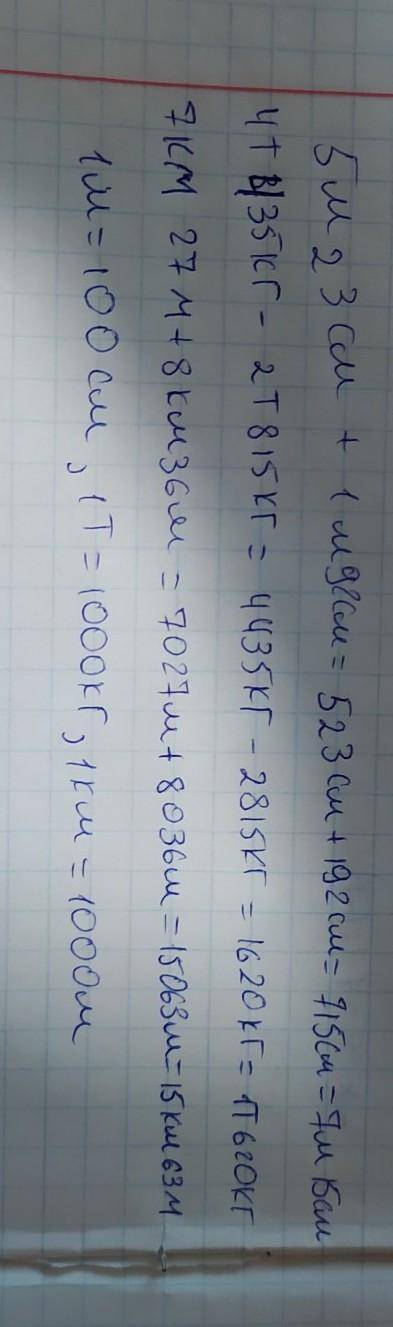 5м 23см + 1м92см = 523см + 192см = 715см = 7м 15см
4т 435кг - 2т 815кг = 4435кг - 2815кг = 1620кг = 1т 620кг
7км 27м + 8км36м = 7027м + 8036м = 15063м = 15км 63м
1м = 100см, 1т = 1000кг, 1км = 1000м